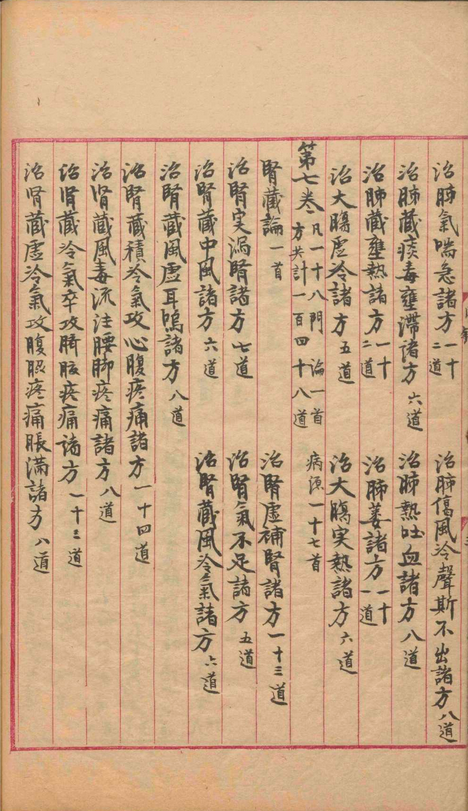 治肺氣喘急諸方一十二道　治肺傷風冷聲斯不出諸方八道
治肺藏痰毒壅滯諸方六道　治肺熱吐血諸方八道
治肺藏壅熱諸方一十二道　治肺萎諸方一十一道
治大腸虛冷諸方五道　治大腸実熱諸方六道
第七卷　凡一十八門　論一首　病源一十七首　方共計一百四十八道
腎藏論一首　治腎虛補腎諸方一十三道
治腎実瀉腎諸方七道　治腎氣不足諸方五道
治腎藏中風諸方六道　治腎藏風冷氣諸方六道
治腎藏風虛耳鳴諸方八道
治腎藏積冷氣攻心腹疼痛諸方一十四道
治腎藏風毒流注腰脚疼痛諸方八道
治腎藏冷氣卒攻臍腹疼痛諸方一十三道
治腎藏虛冷氣攻腹脇疼痛脹滿諸方八道